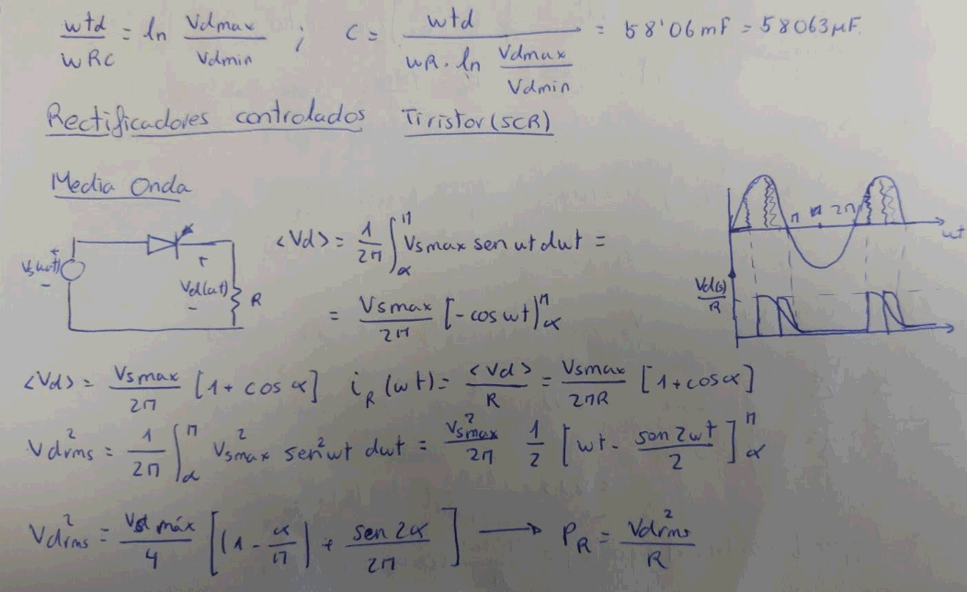 wtd/wRC = ln Vdmax/Vdmin ; C = wtd/(wR · ln Vdmax/Vdmin) = 58'06mF = 58063μF.
Rectificadores controlados Tiristor (SCR)
Media Onda
Vs(wt) + -
Vd(wt) + -
R
<Vd> = 1/2π ∫_α^π Vsmax sen wt dwt =
= Vsmax/2π [-cos wt]_α^π
π 2π
wt
Vd(s)/R
<Vd> = Vsmax/2π [1 + cos α] i_R (wt) = <Vd>/R = Vsmax/2πR [1 + cos α]
Vdrms² = 1/2π ∫_α^π Vsmax² sen² wt dwt = Vsmax²/2π 1/2 [wt - sen 2wt/2]_α^π
Vdrms² = máx/4 [(1 - α/π) + sen 2α/2π] → P_R = Vdrms²/R